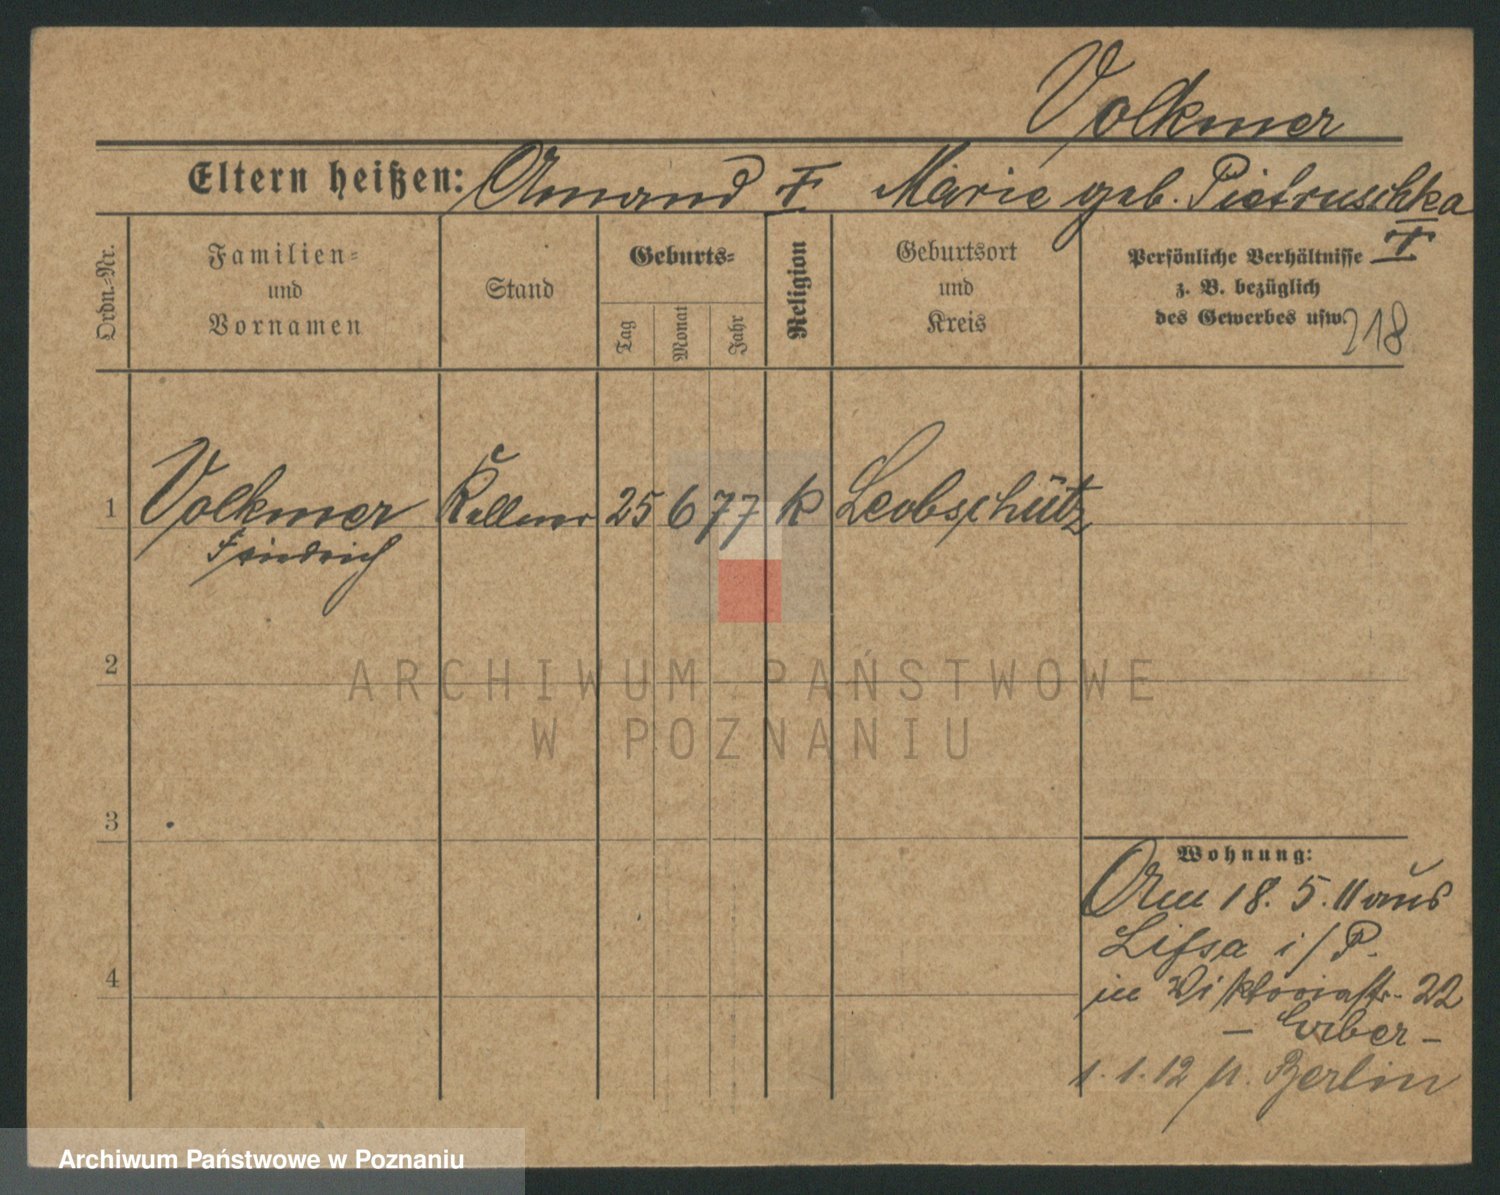 Volkmer
Eltern heißen: Amand † Marie geb. Pietruschka †
Ordn.-Nr.
Familien-
und
Vornamen
Stand
Geburts-
Tag
Monat
Jahr
Religion
Geburtsort
und
Kreis
Persönliche Verhältnisse
z. B. bezüglich
des Gewerbes usw.
218
1 Volkmer Kellner 25 6 77 k Leobschütz
Friedrich
2
ARCHIWUM PAŃSTWOWE
W POZNANIU
3
Wohnung:
Am 18. 5. 11 aus
Lissa i/P.
in Viktoriastr. 22
4
1. 1. 12 n. Berlin
Archiwum Państwowe w Poznaniu